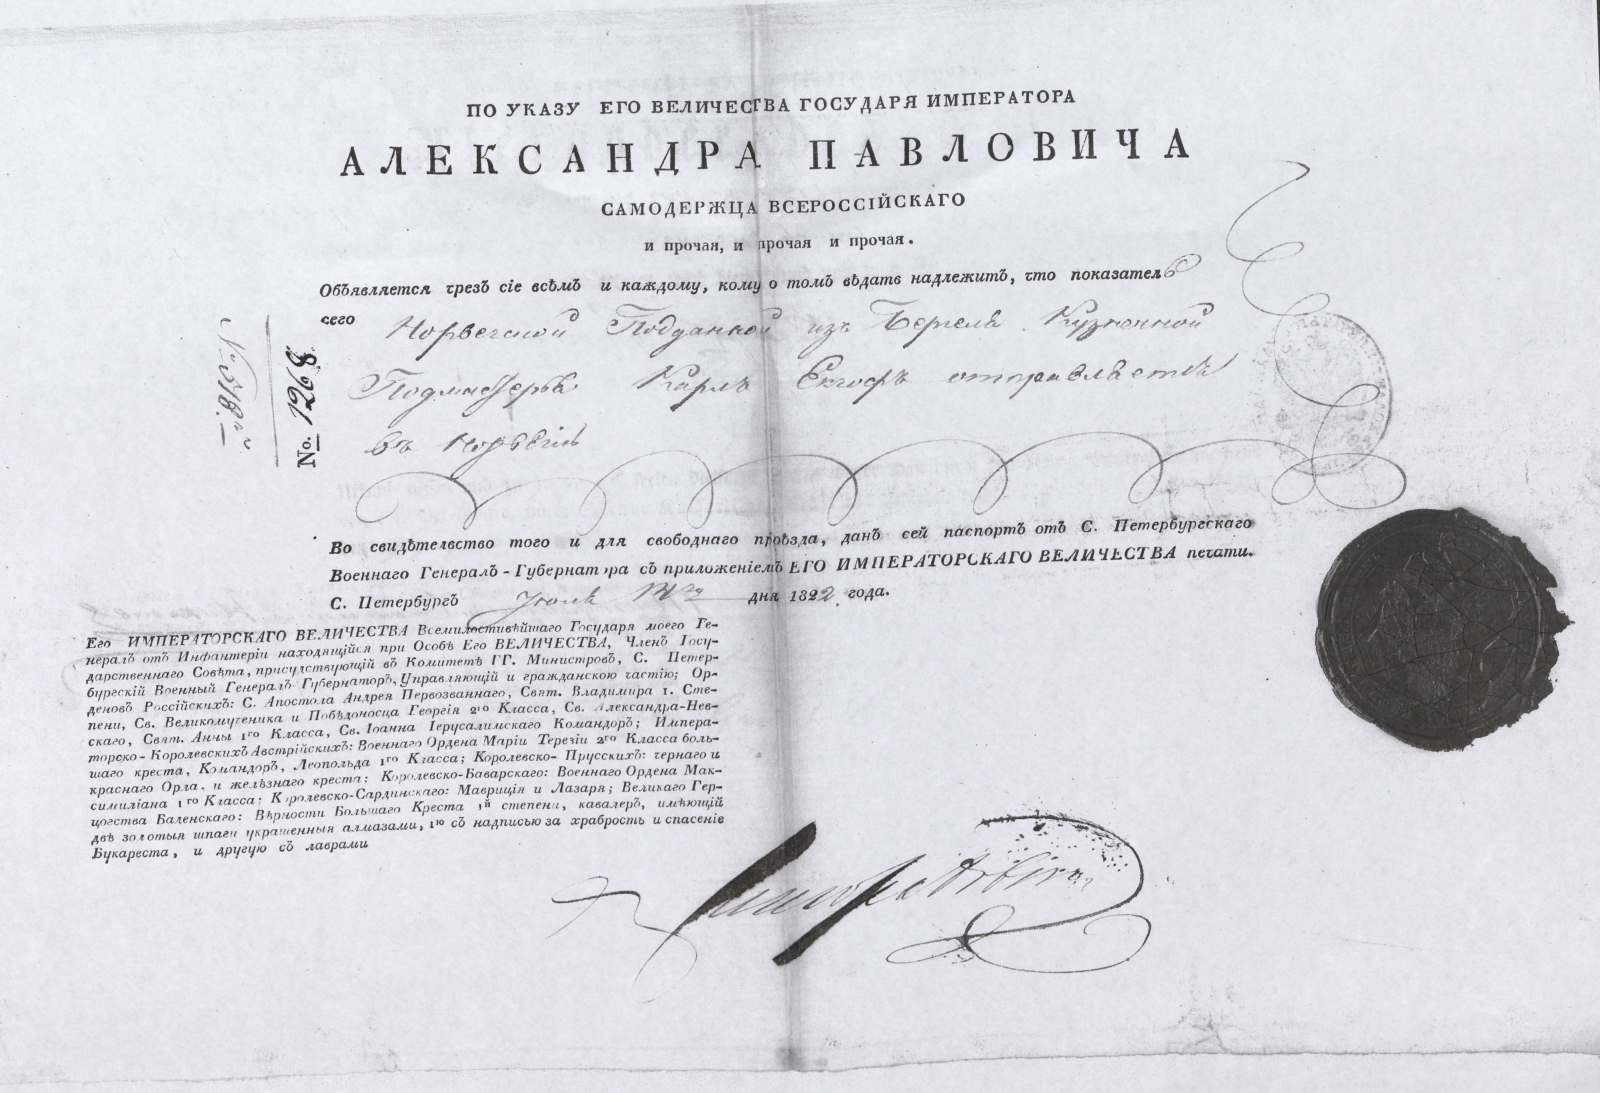 ПО УКАЗУ ЕГО ВЕЛИЧЕСТВА ГОСУДАРЯ ИМПЕРАТОРА
АЛЕКСАНДРА ПАВЛОВИЧА
САМОДЕРЖЦА ВСЕРОССІЙСКАГО
и прочая, и прочая и прочая.
Объявляется чрезъ сіе всѣмъ и каждому, кому о томъ вѣдать надлежитъ, что показатель
сего Норвегской Подданной изъ Бергена Кузнечной
Подмастерье Карлъ Екгофъ отправляется
въ Норвегію
No. 1268.
Во свидѣтельство того и для свободнаго проѣзда, данъ сей паспортъ отъ С. Петербургскаго
Военнаго Генералъ-Губернатора съ приложеніемъ ЕГО ИМПЕРАТОРСКАГО ВЕЛИЧЕСТВА печати.
С. Петербургъ Іюля дня 1822 года.
Его ИМПЕРАТОРСКАГО ВЕЛИЧЕСТВА Всемилостивѣйшаго Государя моего Ге-
нералъ отъ Инфантеріи находящійся при Особѣ Его ВЕЛИЧЕСТВА, Членъ Госу-
дарственнаго Совѣта, присутствующій въ Комитетѣ ГГ. Министровъ, С. Петер-
бургскій Военный Генералъ-Губернаторъ, Управляющій и гражданскою частію; Ор-
деновъ Россійскихъ: С. Апостола Андрея Первозваннаго, Свят. Владимира 1. Сте-
пени, Св. Великомученика и Побѣдоносца Георгія 2го Класса, Св. Александра-Нев-
скаго, Свят. Анны 1го Класса, Св. Іоанна Іерусалимскаго Командоръ; Импера-
торско-Королевскихъ Австрійскихъ: Военнаго Ордена Маріи Терезіи 2го Класса боль-
шаго креста, Командоръ, Леопольда 1го Класса; Королевско-Прусскихъ: чернаго и
краснаго Орла, и желѣзнаго креста; Королевско-Баварскаго: Военнаго Ордена Мак-
симиліана 1го Класса; Королевско-Сардинскаго: Маврикія и Лазаря; Великаго Гер-
цогства Баденскаго: Вѣрности Большаго Креста 1й степени, кавалеръ, имѣющій
двѣ золотыя шпаги украшенныя алмазами, 1ю съ надписью за храбрость и спасеніе
Букареста, и другую съ лаврами